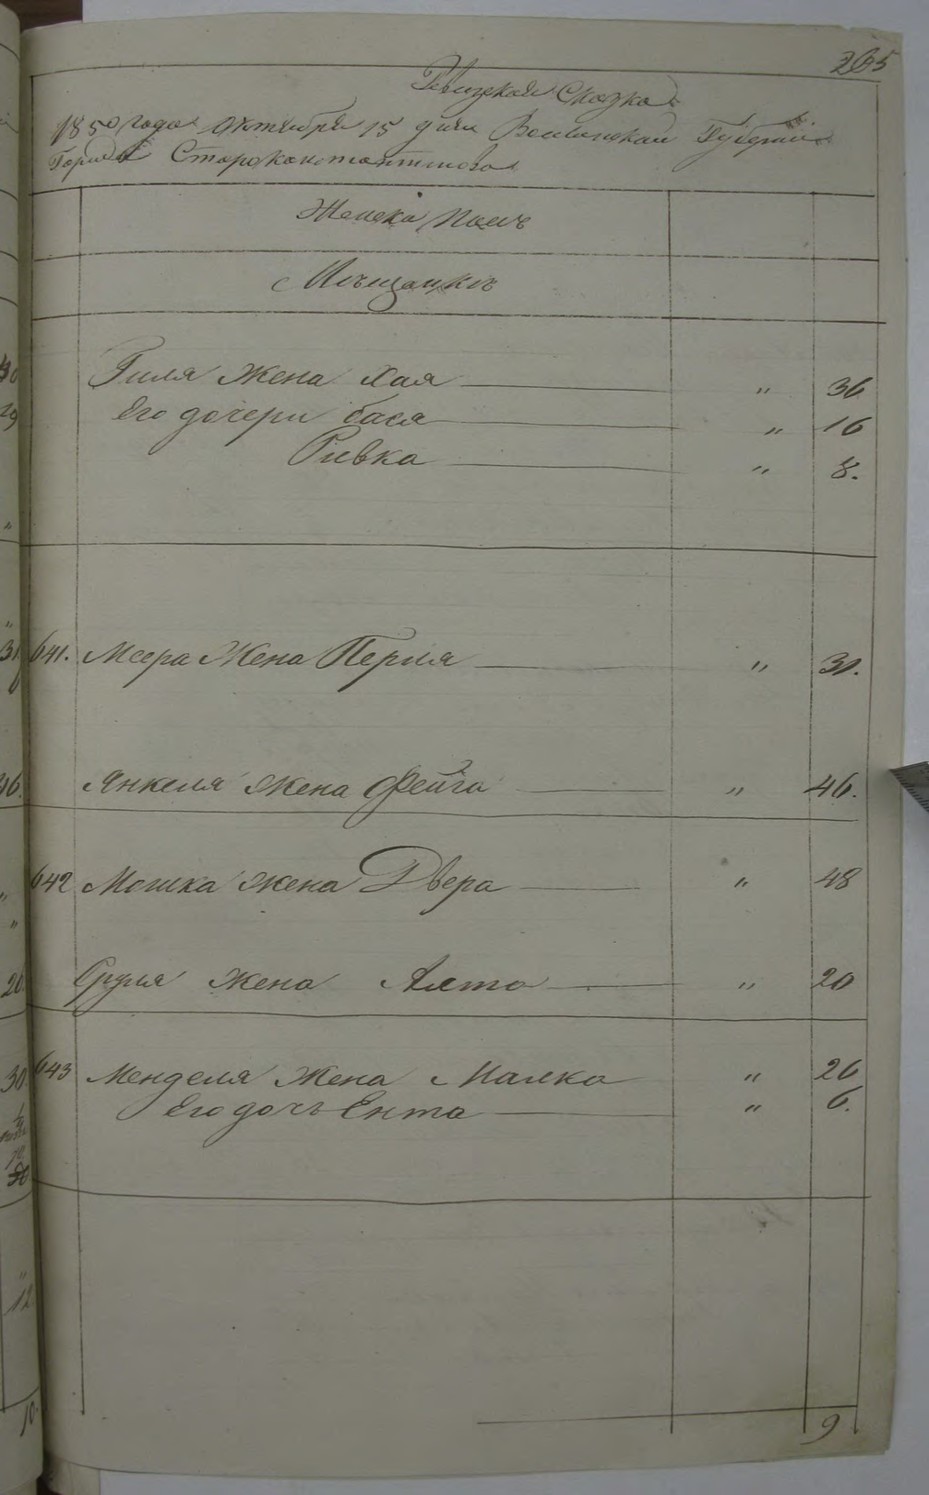 265
Ревизская Сказка
1850 года Октября 15 дня Волынской Губернии
Города Староконстантинова
Женска Полъ
Мѣщанкъ
Гиля жена Хая " 36
Его дочери бася " 16
Ривка " 8.
641. Меера жена Перля " 30.
Янкеля жена Фейга " 46.
642 Мошка жена Двера " 48
Сруля жена Алта " 20
643 Менделя жена Малка " 26
Его дочь Ента " 6.
9